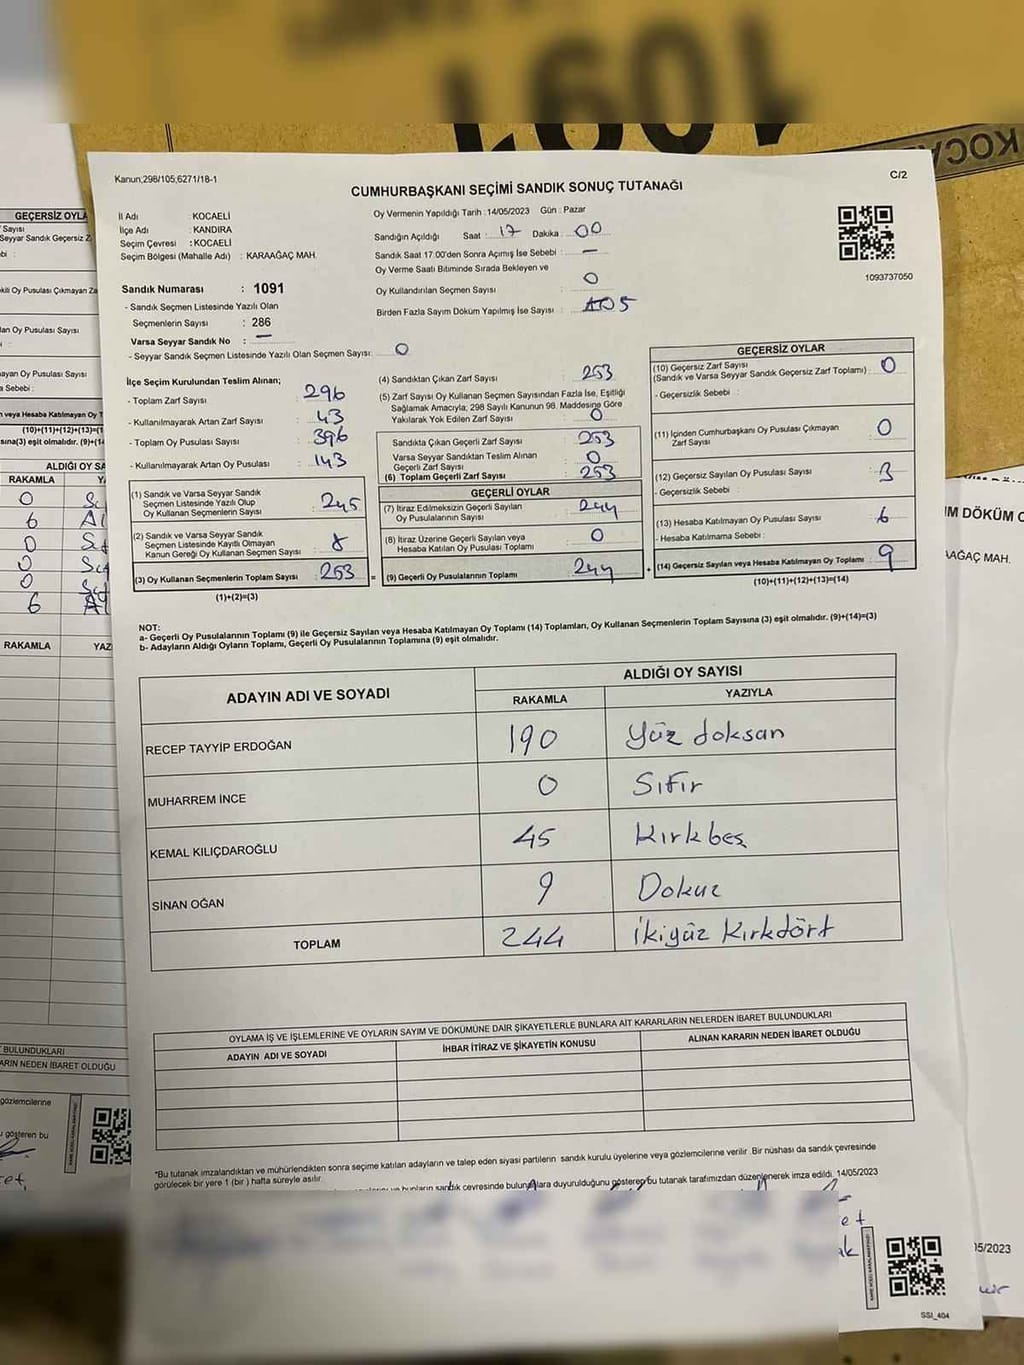 1091
KOCA
Kanun;298/105,6271/18-1
C/2
CUMHURBAŞKANI SEÇİMİ SANDIK SONUÇ TUTANAĞI
İl Adı : KOCAELİ
İlçe Adı : KANDIRA
Seçim Çevresi : KOCAELİ
Seçim Bölgesi (Mahalle Adı) : KARAAĞAÇ MAH.
Sandık Numarası : 1091
- Sandık Seçmen Listesinde Yazılı Olan
Seçmenlerin Sayısı : 286
Varsa Seyyar Sandık No : —
- Seyyar Sandık Seçmen Listesinde Yazılı Olan Seçmen Sayısı: 0
Oy Vermenin Yapıldığı Tarih : 14/05/2023 Gün : Pazar
Sandığın Açıldığı Saat : 17 Dakika : 00
Sandık Saat 17.00'den Sonra Açımış İse Sebebi : —
Oy Verme Saati Bitiminde Sırada Bekleyen ve
Oy Kullandırılan Seçmen Sayısı : 0
Birden Fazla Sayım Döküm Yapılmış İse Sayısı :
1093737050
İlçe Seçim Kurulundan Teslim Alınan;
- Toplam Zarf Sayısı : 296
- Kullanılmayarak Artan Zarf Sayısı : 43
- Toplam Oy Pusulası Sayısı : 396
- Kullanılmayarak Artan Oy Pusulası : 143
(1) Sandık ve Varsa Seyyar Sandık
Seçmen Listesinde Yazılı Olup
Oy Kullanan Seçmenlerin Sayısı : 245
(2) Sandık ve Varsa Seyyar Sandık
Seçmen Listesinde Kayıtlı Olmayan
Kanun Gereği Oy Kullanan Seçmen Sayısı : 8
(3) Oy Kullanan Seçmenlerin Toplam Sayısı : 253
(1)+(2)=(3)
(4) Sandıktan Çıkan Zarf Sayısı : 253
(5) Zarf Sayısı Oy Kullanan Seçmen Sayısından Fazla İse, Eşitliği
Sağlamak Amacıyla; 298 Sayılı Kanunun 98. Maddesine Göre
Yakılarak Yok Edilen Zarf Sayısı : 0
Sandıkta Çıkan Geçerli Zarf Sayısı : 253
Varsa Seyyar Sandıktan Teslim Alınan
Geçerli Zarf Sayısı : 0
(6) Toplam Geçerli Zarf Sayısı : 253
GEÇERLİ OYLAR
(7) İtiraz Edilmeksizin Geçerli Sayılan
Oy Pusulalarının Sayısı : 244
(8) İtiraz Üzerine Geçerli Sayılan veya
Hesaba Katılan Oy Pusulası Toplamı : 0
= (9) Geçerli Oy Pusulalarının Toplamı : 244
GEÇERSİZ OYLAR
(10) Geçersiz Zarf Sayısı
(Sandık ve Varsa Seyyar Sandık Geçersiz Zarf Toplamı) : 0
- Geçersizlik Sebebi :
(11) İçinden Cumhurbaşkanı Oy Pusulası Çıkmayan
Zarf Sayısı : 0
(12) Geçersiz Sayılan Oy Pusulası Sayısı : 3
- Geçersizlik Sebebi :
(13) Hesaba Katılmayan Oy Pusulası Sayısı : 6
- Hesaba Katılmama Sebebi :
+ (14) Geçersiz Sayılan veya Hesaba Katılmayan Oy Toplamı : 9
(10)+(11)+(12)+(13)=(14)
NOT:
a- Geçerli Oy Pusulalarının Toplamı (9) ile Geçersiz Sayılan veya Hesaba Katılmayan Oy Toplamı (14) Toplamları, Oy Kullanan Seçmenlerin Toplam Sayısına (3) eşit olmalıdır. (9)+(14)=(3)
b- Adayların Aldığı Oyların Toplamı, Geçerli Oy Pusulalarının Toplamına (9) eşit olmalıdır.
ADAYIN ADI VE SOYADI
ALDIĞI OY SAYISI
RAKAMLA YAZIYLA
RECEP TAYYİP ERDOĞAN 190 Yüz doksan
MUHARREM İNCE 0 Sıfır
KEMAL KILIÇDAROĞLU 45 Kırkbeş
SİNAN OĞAN 9 Dokuz
TOPLAM 244 İkiyüz Kırkdört
OYLAMA İŞ VE İŞLEMLERİNE VE OYLARIN SAYIM VE DÖKÜMÜNE DAİR ŞİKAYETLERLE BUNLARA AİT KARARLARIN NELERDEN İBARET BULUNDUKLARI
ADAYIN ADI VE SOYADI İHBAR İTİRAZ VE ŞİKAYETİN KONUSU ALINAN KARARIN NEDEN İBARET OLDUĞU
*Bu tutanak imzalandıktan ve mühürlendikten sonra seçime katılan adayların ve talep eden siyasi partilerin sandık kurulu üyelerine veya gözlemcilerine verilir. Bir nüshası da sandık çevresinde
görülecek bir yere 1 (bir) hafta süreyle asılır.
sandık çevresinde bulunanlara duyurulduğunu gösterep bu tutanak tarafımızdan düzenlenerek imza edildi. 14/05/2023
SSI_404
GEÇERSİZ OYLA
Sayısı
Seyyar Sandık Geçersiz Z
Oy Pusulası Çıkmayan Za
Oy Pusulası Sayısı
Oy Pusulası Sayısı
a Sebebi :
veya Hesaba Katılmayan Oy T
(10)+(11)+(12)+(13)=(1
sına(3) eşit olmalıdır. (9)+(14
ALDIĞI OY SA
RAKAMLA
0
6
0
0
0
6
RAKAMLA YAZ
BULUNDUKLARI
ARIN NEDEN İBARET OLDUĞU
gözlemcilerine
gösteren bu
M DÖKÜM
AĞAÇ MAH.
05/2023